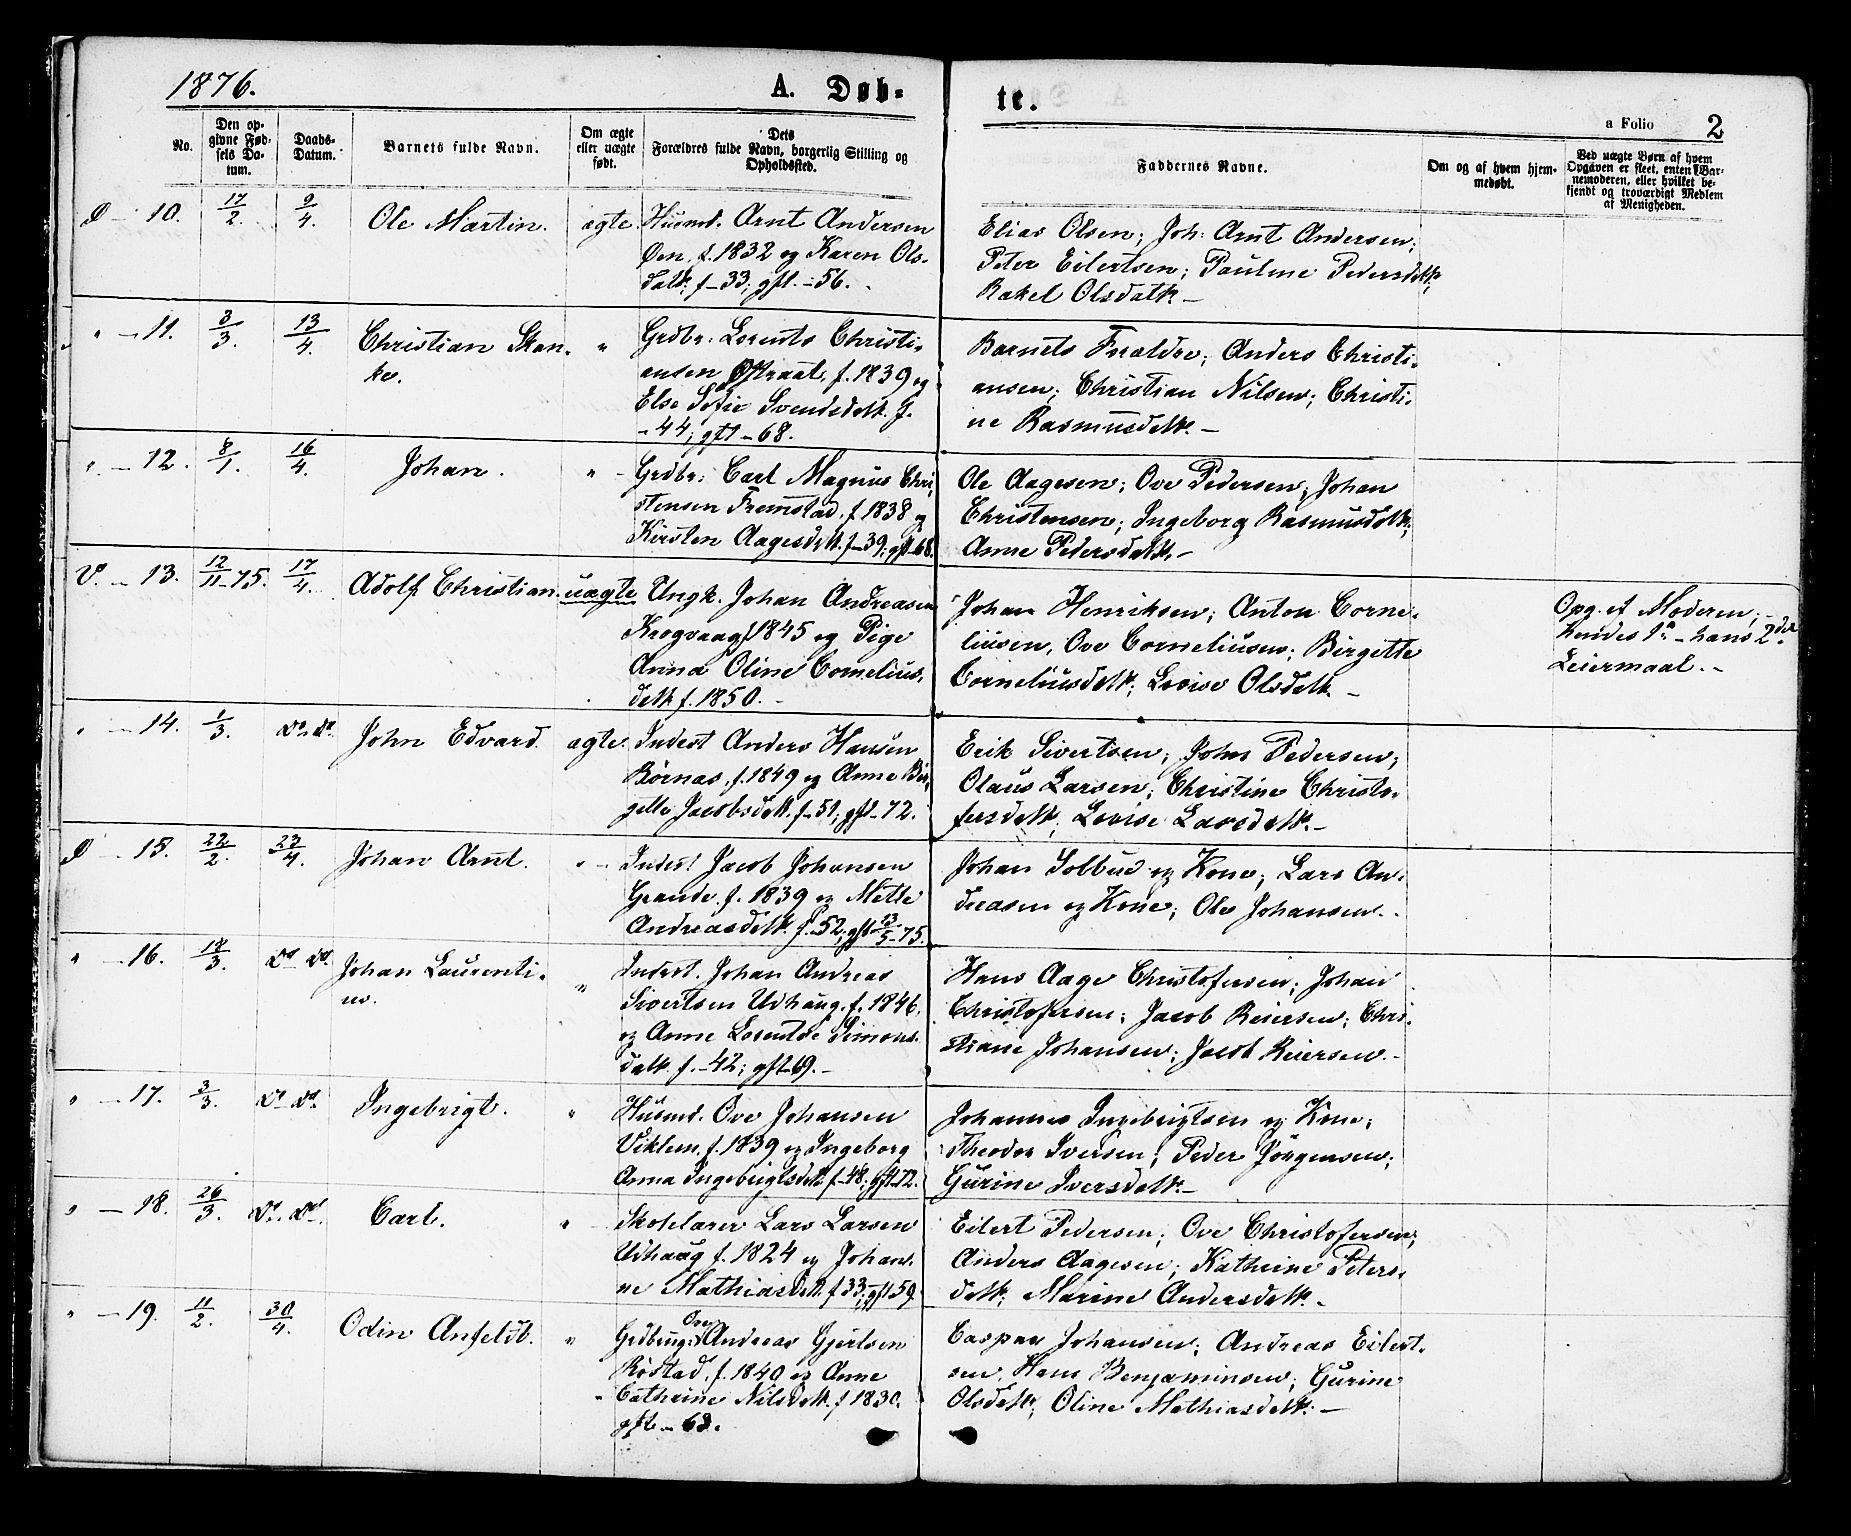 1876.
A. Døb-
te.
a Folio 2
No.
Den op-
givne Fød-
sels Da-
tum.
Daabs-
Datum.
Barnets fulde Navn.
Om ægte
eller uægte
født.
Dets
Forældres fulde Navn, borgerlig Stilling og
Opholdssted.
Faddernes Navne.
Om og af hvem hjem-
medøbt.
Ved uægte Børn af hvem
Opgaven er skeet, enten Bar-
nemoderen, eller hvilket be-
kjendt og troværdigt Medlem
af Menigheden.
10. 17/2. 9/4. Ole Martin. ægte. Husmd. Arnt Andersen
Øen, f. 1832 og Karen Ols-
datt. f–33; gft. –56.
Elias Olsen; Joh: Arnt Andersen;
Peter Eilertsen; Pauline Pedersdatt;
Rakel Olsdatt. –
" – 11. 3/3. 13/4. Christian Skan-
ke. " Grdbr. Lorents Christi-
ansen Østraat, f. 1839 og
Else Sofie Svendsdatt. f.
–44; gft –68.
Barnets Forældre; Anders Christi-
ansen; Christian Nilsen; Christi-
ne Rasmusdatt. –
" – 12. 8/1. 16/4. Johan. " – Grdbr: Carl Magnus Chri-
stensen Fremstad, f. 1838 og
Kirsten Aagesdatt. f–39; gft–68.
Ole Aagesen; Ove Pedersen; Johan
Christensen; Ingeborg Rasmusdatt;
Anne Pedersdatt. –
V. – 13. 12/11–75. 17/4. Adolf Christian. uægte Ungk. Johan Andreasen
Krogvaag f. 1845 og Pige
Anna Oline Cornelius-
datt f. 1850. –
Johan Henriksen; Anton Corne-
liusen, Ove Corneliusen; Birgitte
Corneliusdatt; Lovise Olsdatt. –
Opg. af Moderen;
hendes 1ste – hans 2det
Leiermaal. –
" – 14. 1/3. do. do. John Edvard. ægte. Inderst Anders Hansen
Børnas, f. 1849 og Anne Bir-
gitte Jacobsdatt. f–51; gft–72.
Erik Sivertsen; John Pedersen;
Olaus Larsen; Christine Christo-
fersdatt; Lovise Larsdatt. –
15. 22/2. 23/4. Johan Arnt. " – Inderst Jacob Johansen
Grande. f. 1839 og Mette
Andreasdatt. f–52; gft 13/5–75.
Johan Solbue og Kone; Lars An-
dreasen og Kone; Ole Johansen. –
" – 16. 18/3. do do. Johan Laurenti-
us. " Inderst. Johan Andreas
Sivertsen Udhaug. f. 1846,
og Anne Lorentse Simons-
datt. f. –42; gft–69. –
Hans Aage Christofersen; Johan
Christofersen; Jacob Reiersen; Chri-
stiane Johansen; Jacob Reiersen. –
" – 17. 3/3. do do. Ingebrigt. " Husmd. Ove Johansen
Viklem, f. 1839 og Ingeborg
Anna Ingebrigtsdatt. f–48; gft–72.
Johannes Ingebrigtsen og Kone;
Theodor Iversen; Peder Jörgensen;
Gurine Iversdatt. –
" – 18. 26/3. do. do. Carl. " Skolelærer Lars Larsen
Udhaug f. 1824 og Johan-
ne Mathiasdatt. f 33; gft 59.
Eilert Pedersen; Ove Christofersen;
Anders Aagesen; Kathrine Peters-
datt; Marine Andersdatt. –
" – 19. 11/2. 30/4. Odin Anfeldt. " Grdbrug: Ove Andreas Gjertsen
Röstad, f. 1840 og Anne
Cathrine Nilsdatt. f 1830.
gft. – 63.
Caspar Johansen; Andreas Eilert-
sen, Hans Benjaminsen; Gurine
Olsdatt; Oline Mathiasdatt. –